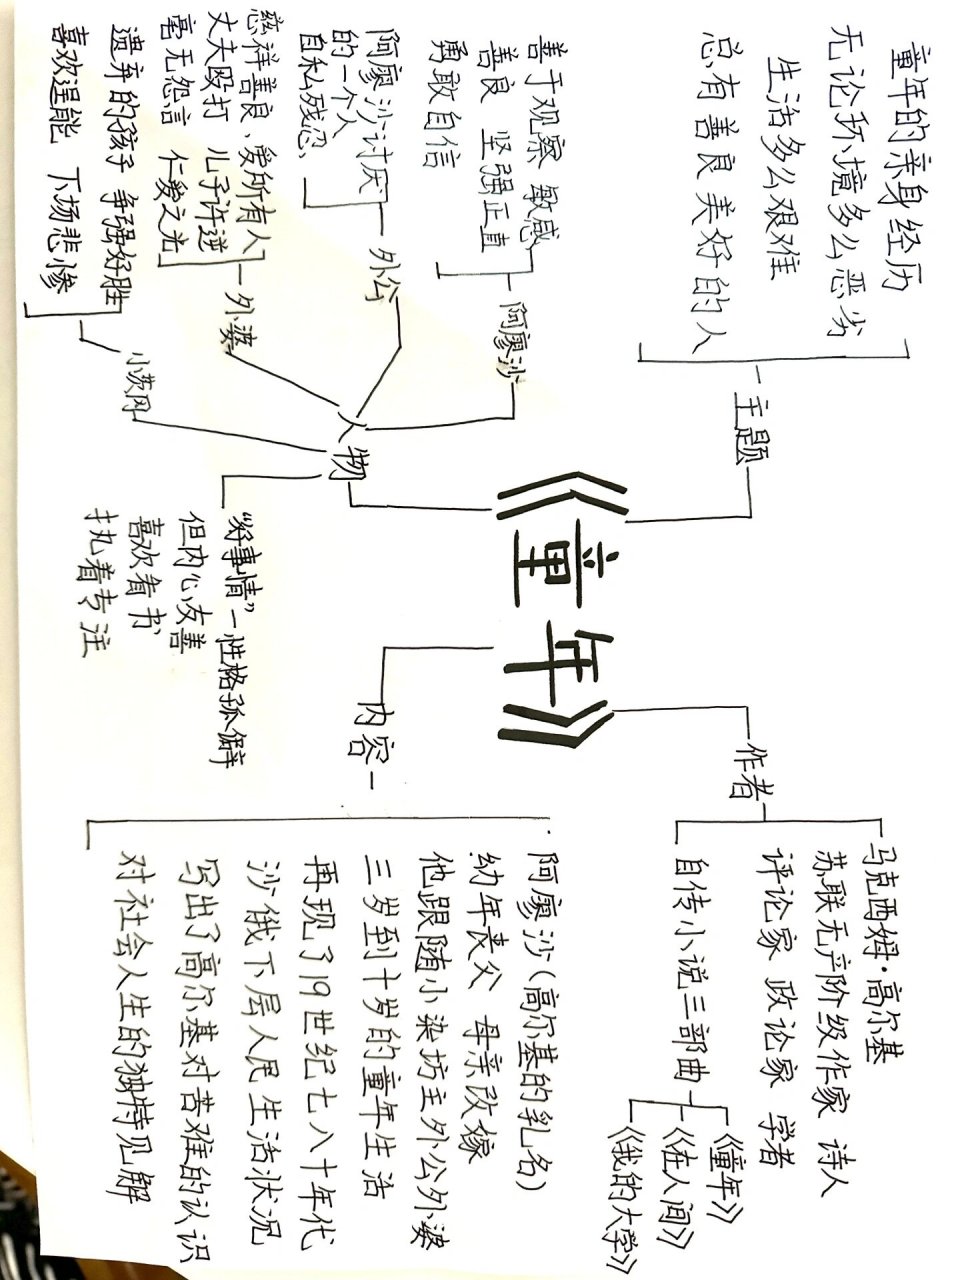 《童年》
主题
童年的亲身经历
无论环境多么恶劣
生活多么艰难
总有善良美好的人
作者
马克西姆·高尔基
苏联无产阶级作家 诗人
评论家 政论家 学者
自传小说三部曲
《童年》
《在人间》
《我的大学》
人物
阿廖沙
善于观察 敏感
善良 坚强正直
勇敢自信
外公
阿廖沙讨厌
的一个人
自私残忍、
外婆
慈祥善良、爱所有人
丈夫殴打 儿子忤逆
毫无怨言 仁爱之光
小茨冈
遗弃的孩子 争强好胜
喜欢逞能 下场悲惨
“好事情”—性格孤僻
但内心友善
喜欢看书
执着专注
内容
阿廖沙(高尔基的乳名)
幼年丧父 母亲改嫁
他跟随小染坊主外公外婆
三岁到十岁的童年生活
再现了19世纪七八十年代
沙俄下层人民生活状况
写出了高尔基对苦难的认识
对社会人生的独特见解